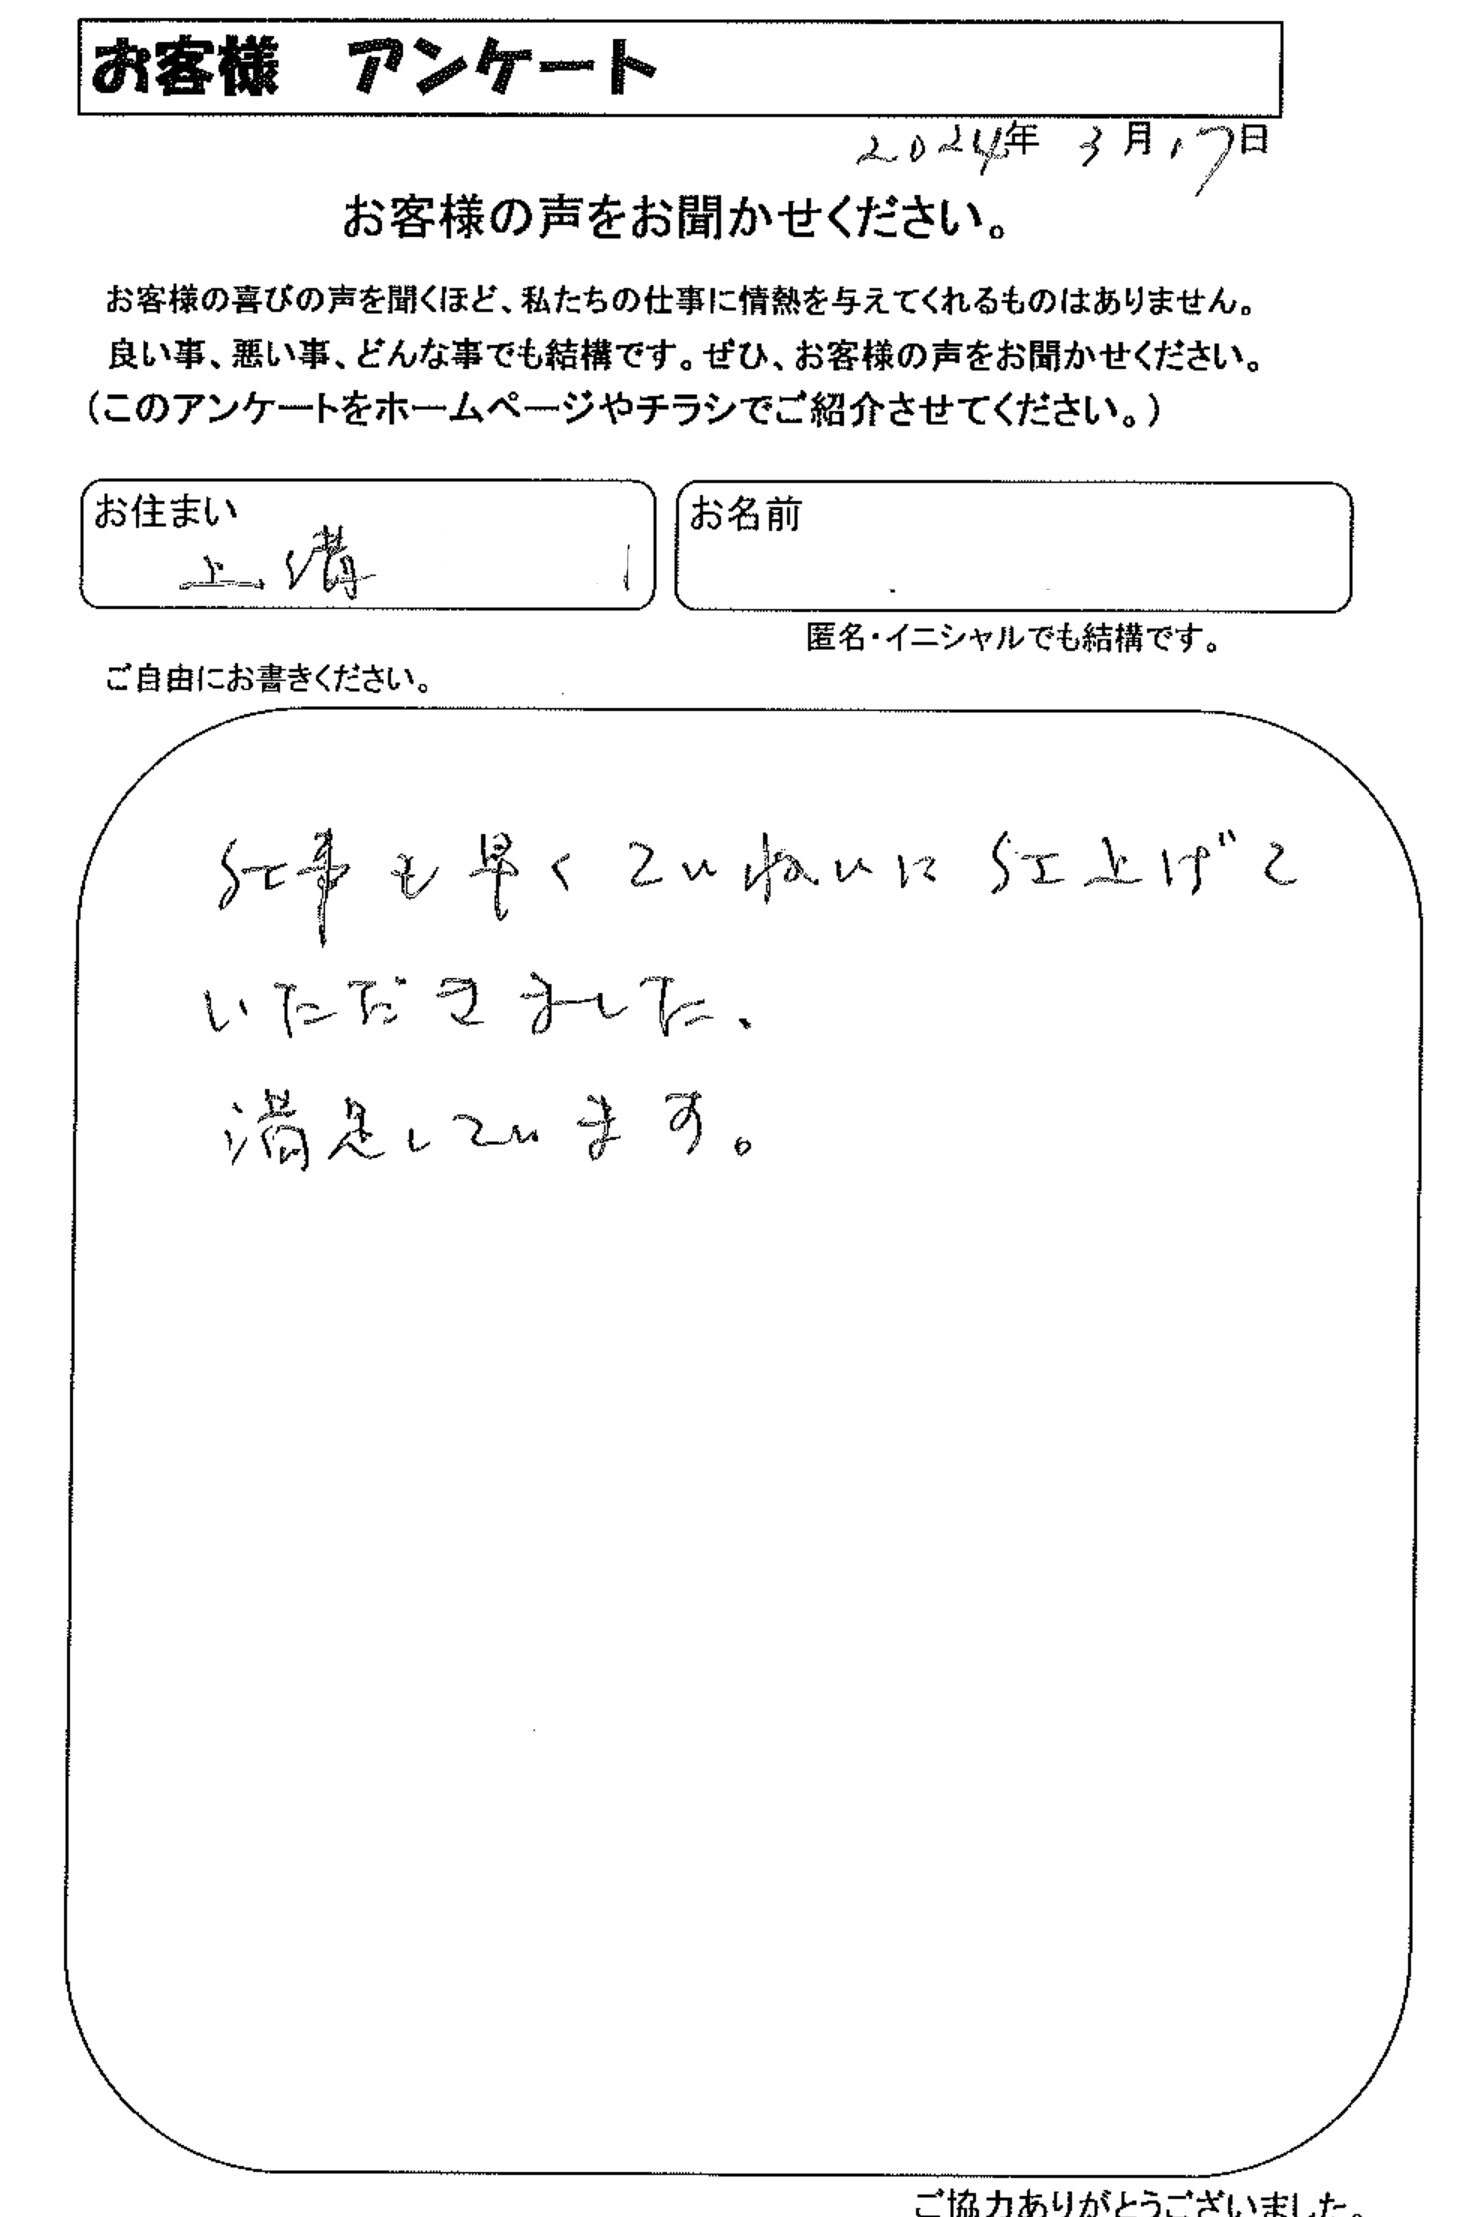 お客様　アンケート
2024年 3月17日
お客様の声をお聞かせください。
お客様の喜びの声を聞くほど、私たちの仕事に情熱を与えてくれるものはありません。
良い事、悪い事、どんな事でも結構です。ぜひ、お客様の声をお聞かせください。
(このアンケートをホームページやチラシでご紹介させてください。)
お住まい
上溝
お名前
匿名・イニシャルでも結構です。
ご自由にお書きください。
仕事も早くていねいに仕上げて
いただきました、
満足しています。
ご協力ありがとうございました。